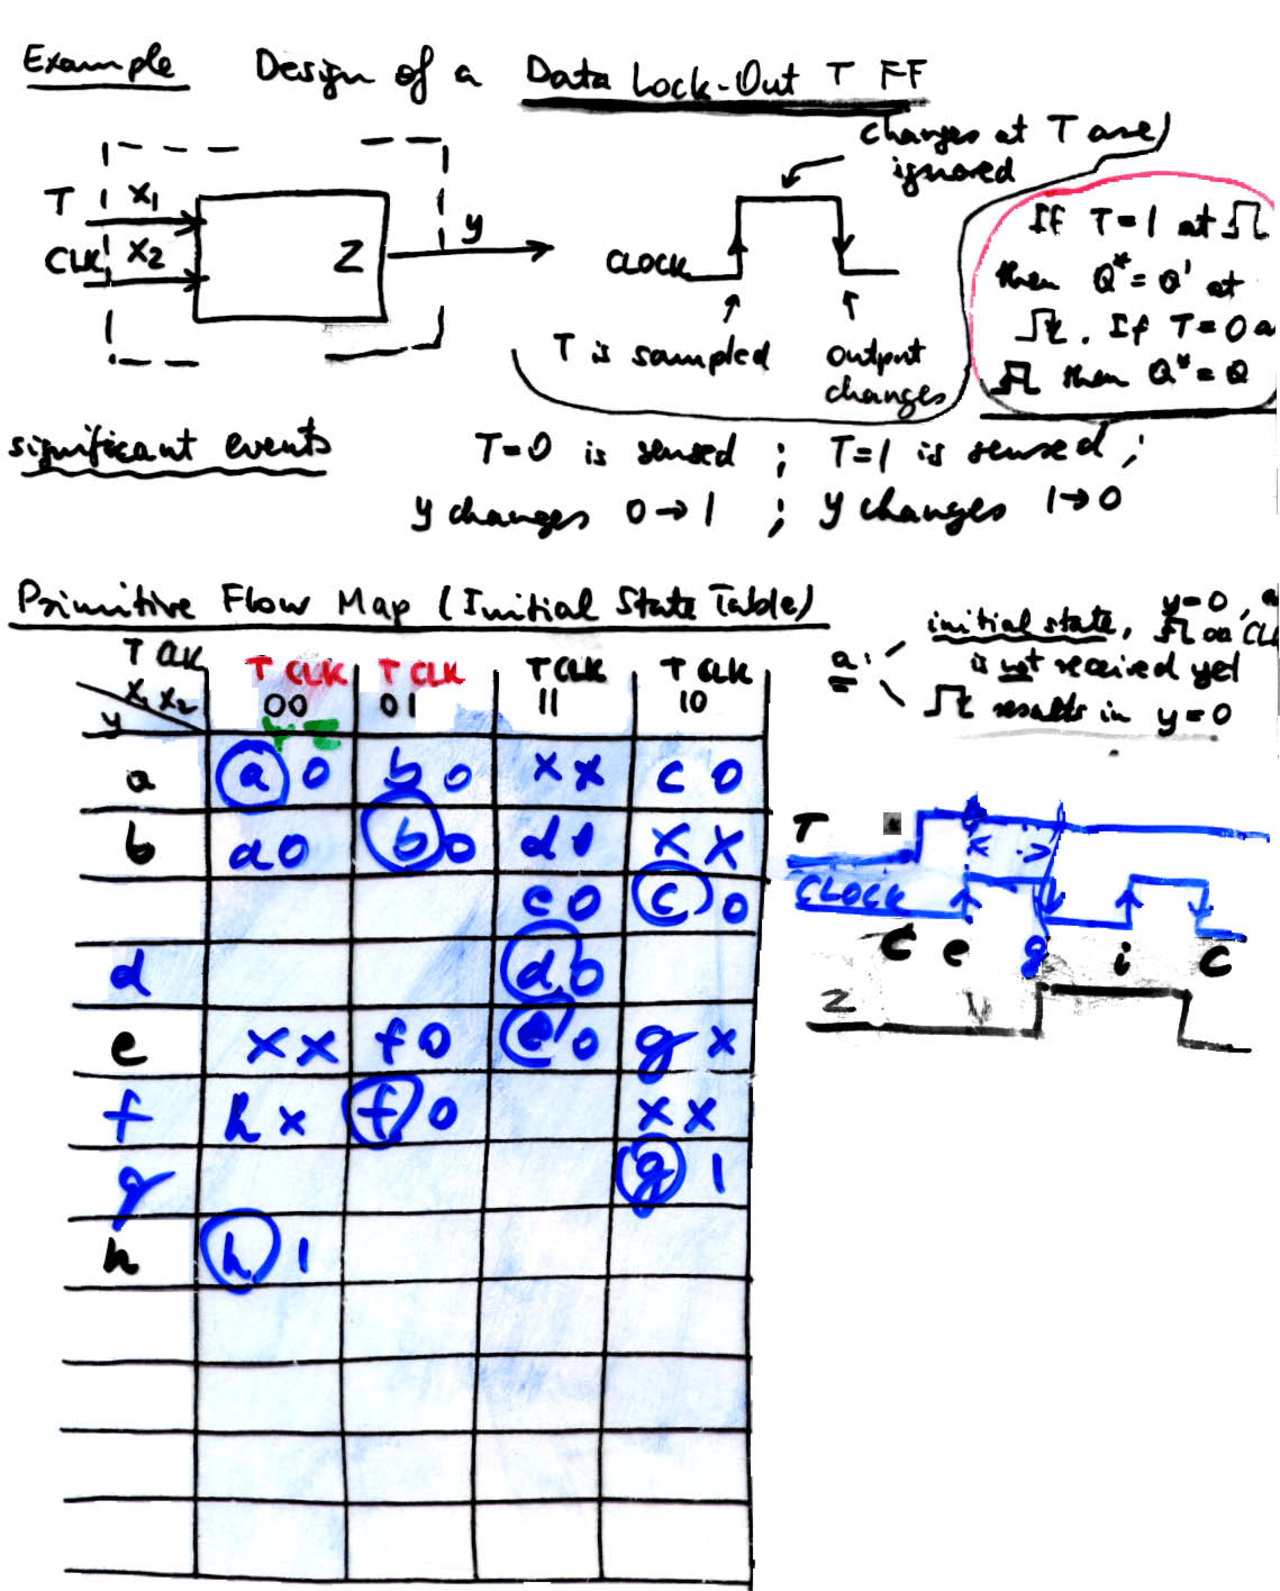 Example Design of a Data Lock-Out T FF
changes at T are
ignored
T x1
CLK x2
Z
y
CLOCK
T is sampled
output
changes
If T=1 at
then Q*=Q' at
. If T=0 a
then Q*=Q
significant events T=0 is sensed ; T=1 is sensed ;
y changes 0→1 ; y changes 1→0
Primitive Flow Map (Initial State Table)
a:
initial state, y=0,
on CL
is not received yet
results in y=0
T CLK T CLK T CLK T CLK T CLK
x1 x2 00 01 11 10
y
a a 0 b 0 x x c 0
b a 0 b 0 d 0 x x
e 0 c 0
d d 0
e x x f 0 e 0 g x
f h x f 0 x x
g g 1
h h 1
T
CLOCK
c e g i c
Z